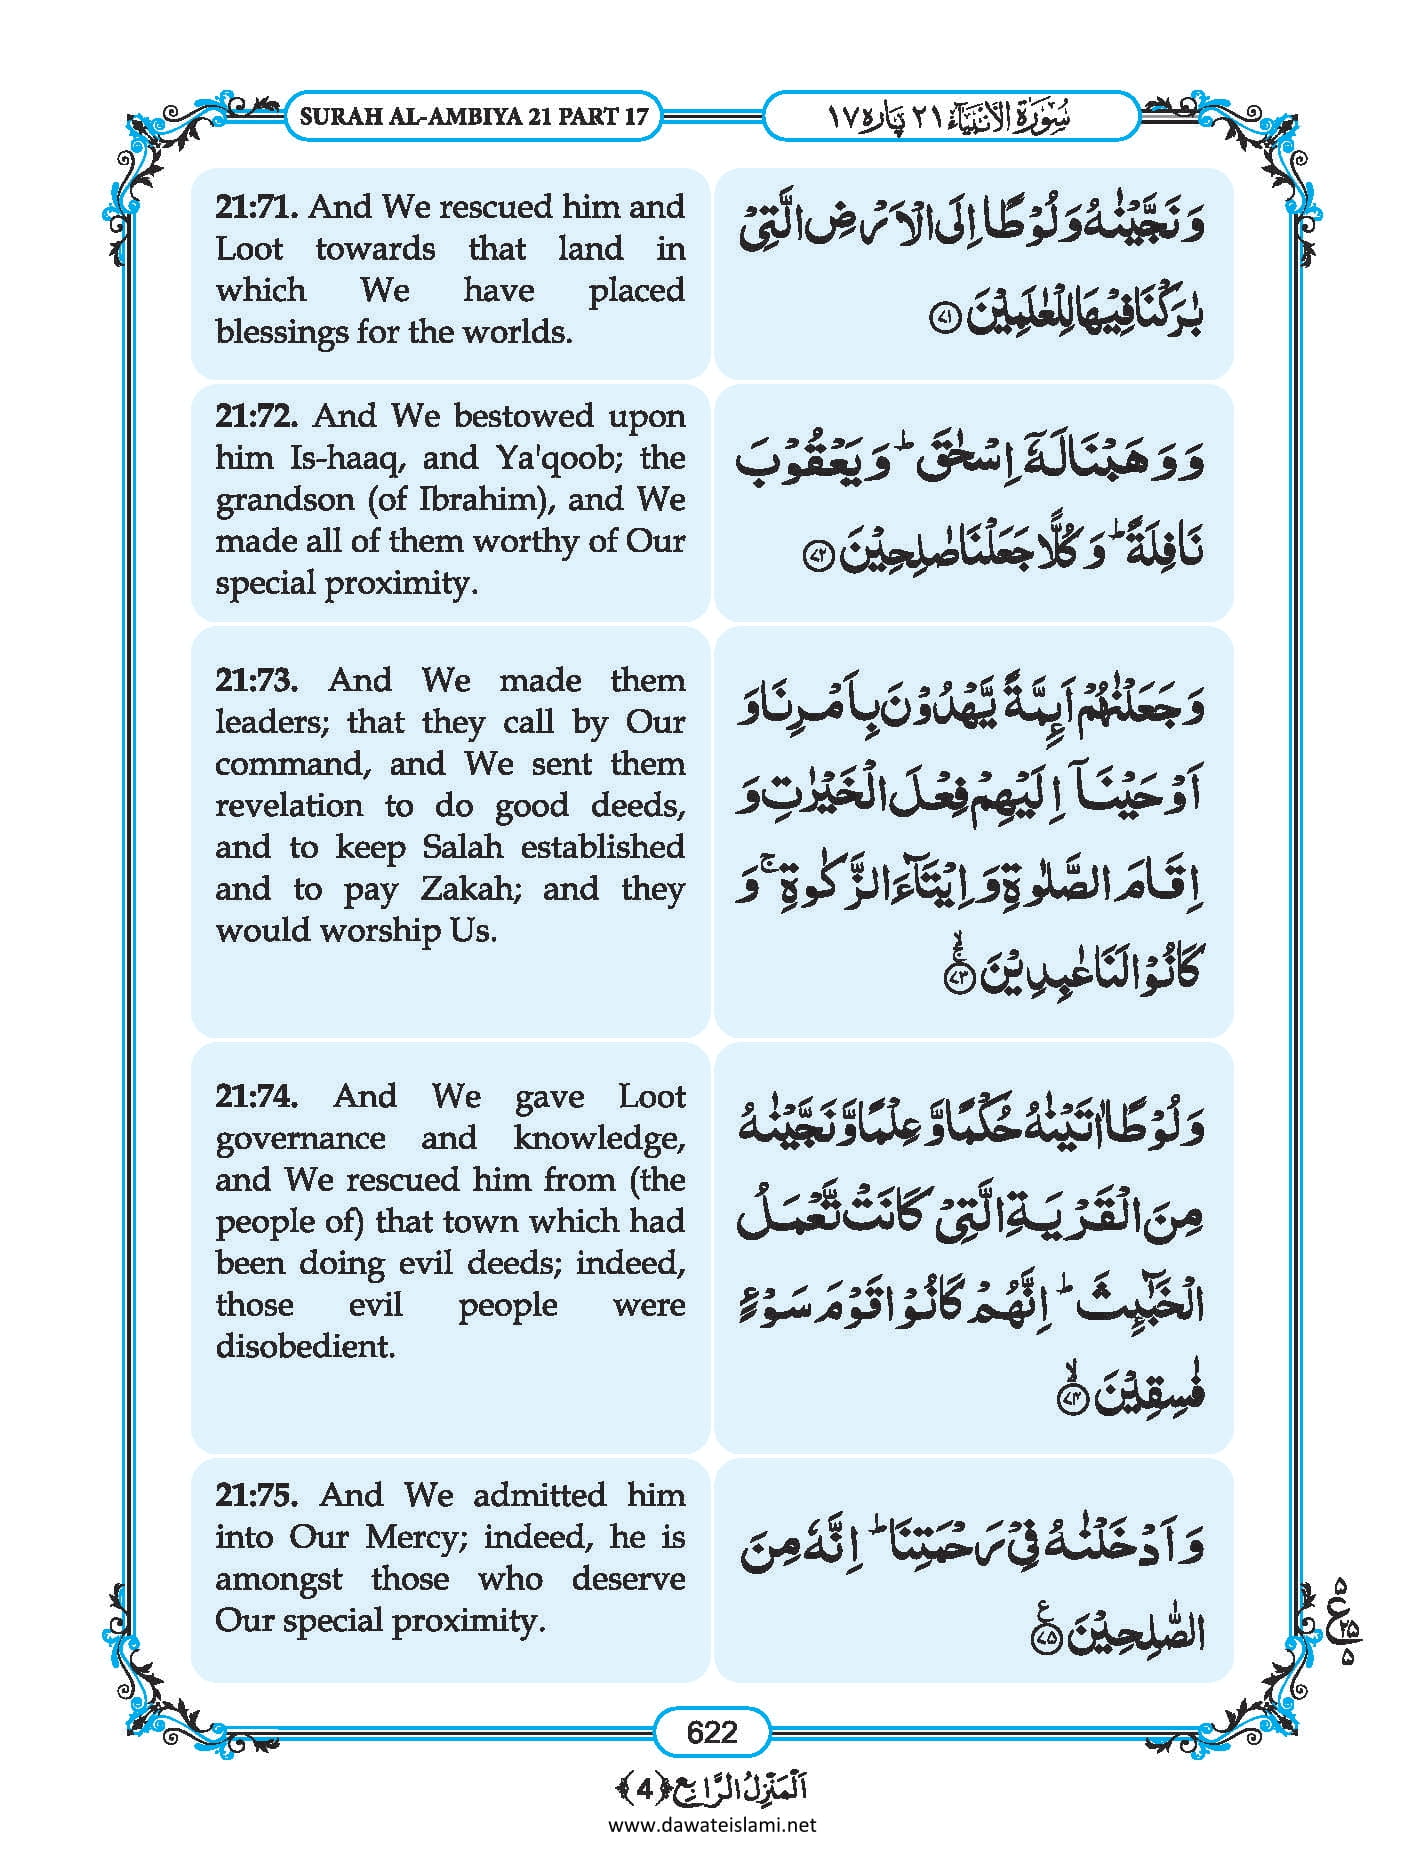 SURAH AL-AMBIYA 21 PART 17
سُوْرَةُ الْاَنْبِیَآءِ ٢١ پَارہ ١٧
21:71. And We rescued him and
Loot towards that land in
which We have placed
blessings for the worlds.
وَ نَجَّیْنٰهُ وَ لُوْطًا اِلَى الْاَرْضِ الَّتِیْ
بٰرَكْنَا فِیْهَا لِلْعٰلَمِیْنَ ﴿۷۱﴾
21:72. And We bestowed upon
him Is-haaq, and Ya'qoob; the
grandson (of Ibrahim), and We
made all of them worthy of Our
special proximity.
وَ وَهَبْنَا لَهٗۤ اِسْحٰقَ ؕ وَ یَعْقُوْبَ
نَافِلَةً ؕ وَ كُلًّا جَعَلْنَا صٰلِحِیْنَ ﴿۷۲﴾
21:73. And We made them
leaders; that they call by Our
command, and We sent them
revelation to do good deeds,
and to keep Salah established
and to pay Zakah; and they
would worship Us.
وَ جَعَلْنٰهُمْ اَىِٕمَّةً یَّهْدُوْنَ بِاَمْرِنَا وَ
اَوْحَیْنَاۤ اِلَیْهِمْ فِعْلَ الْخَیْرٰتِ وَ
اِقَامَ الصَّلٰوةِ وَ اِیْتَآءَ الزَّكٰوةِ ۚ وَ
كَانُوْا لَنَا عٰبِدِیْنَ ﴿۷۳﴾ ۚۙ
21:74. And We gave Loot
governance and knowledge,
and We rescued him from (the
people of) that town which had
been doing evil deeds; indeed,
those evil people were
disobedient.
وَ لُوْطًا اٰتَیْنٰهُ حُكْمًا وَّ عِلْمًا وَّ نَجَّیْنٰهُ
مِنَ الْقَرْیَةِ الَّتِیْ كَانَتْ تَّعْمَلُ
الْخَبٰٓىِٕثَ ؕ اِنَّهُمْ كَانُوْا قَوْمَ سَوْءٍ
فٰسِقِیْنَ ﴿۷۴﴾ ۙ
21:75. And We admitted him
into Our Mercy; indeed, he is
amongst those who deserve
Our special proximity.
وَ اَدْخَلْنٰهُ فِیْ رَحْمَتِنَا ؕ اِنَّهٗ مِنَ
الصّٰلِحِیْنَ ﴿۷۵﴾ ع
۵
ع ۲۵
۵
622
اَلْمَنْزِلُ الرَّابِع ﴿4﴾
www.dawateislami.net